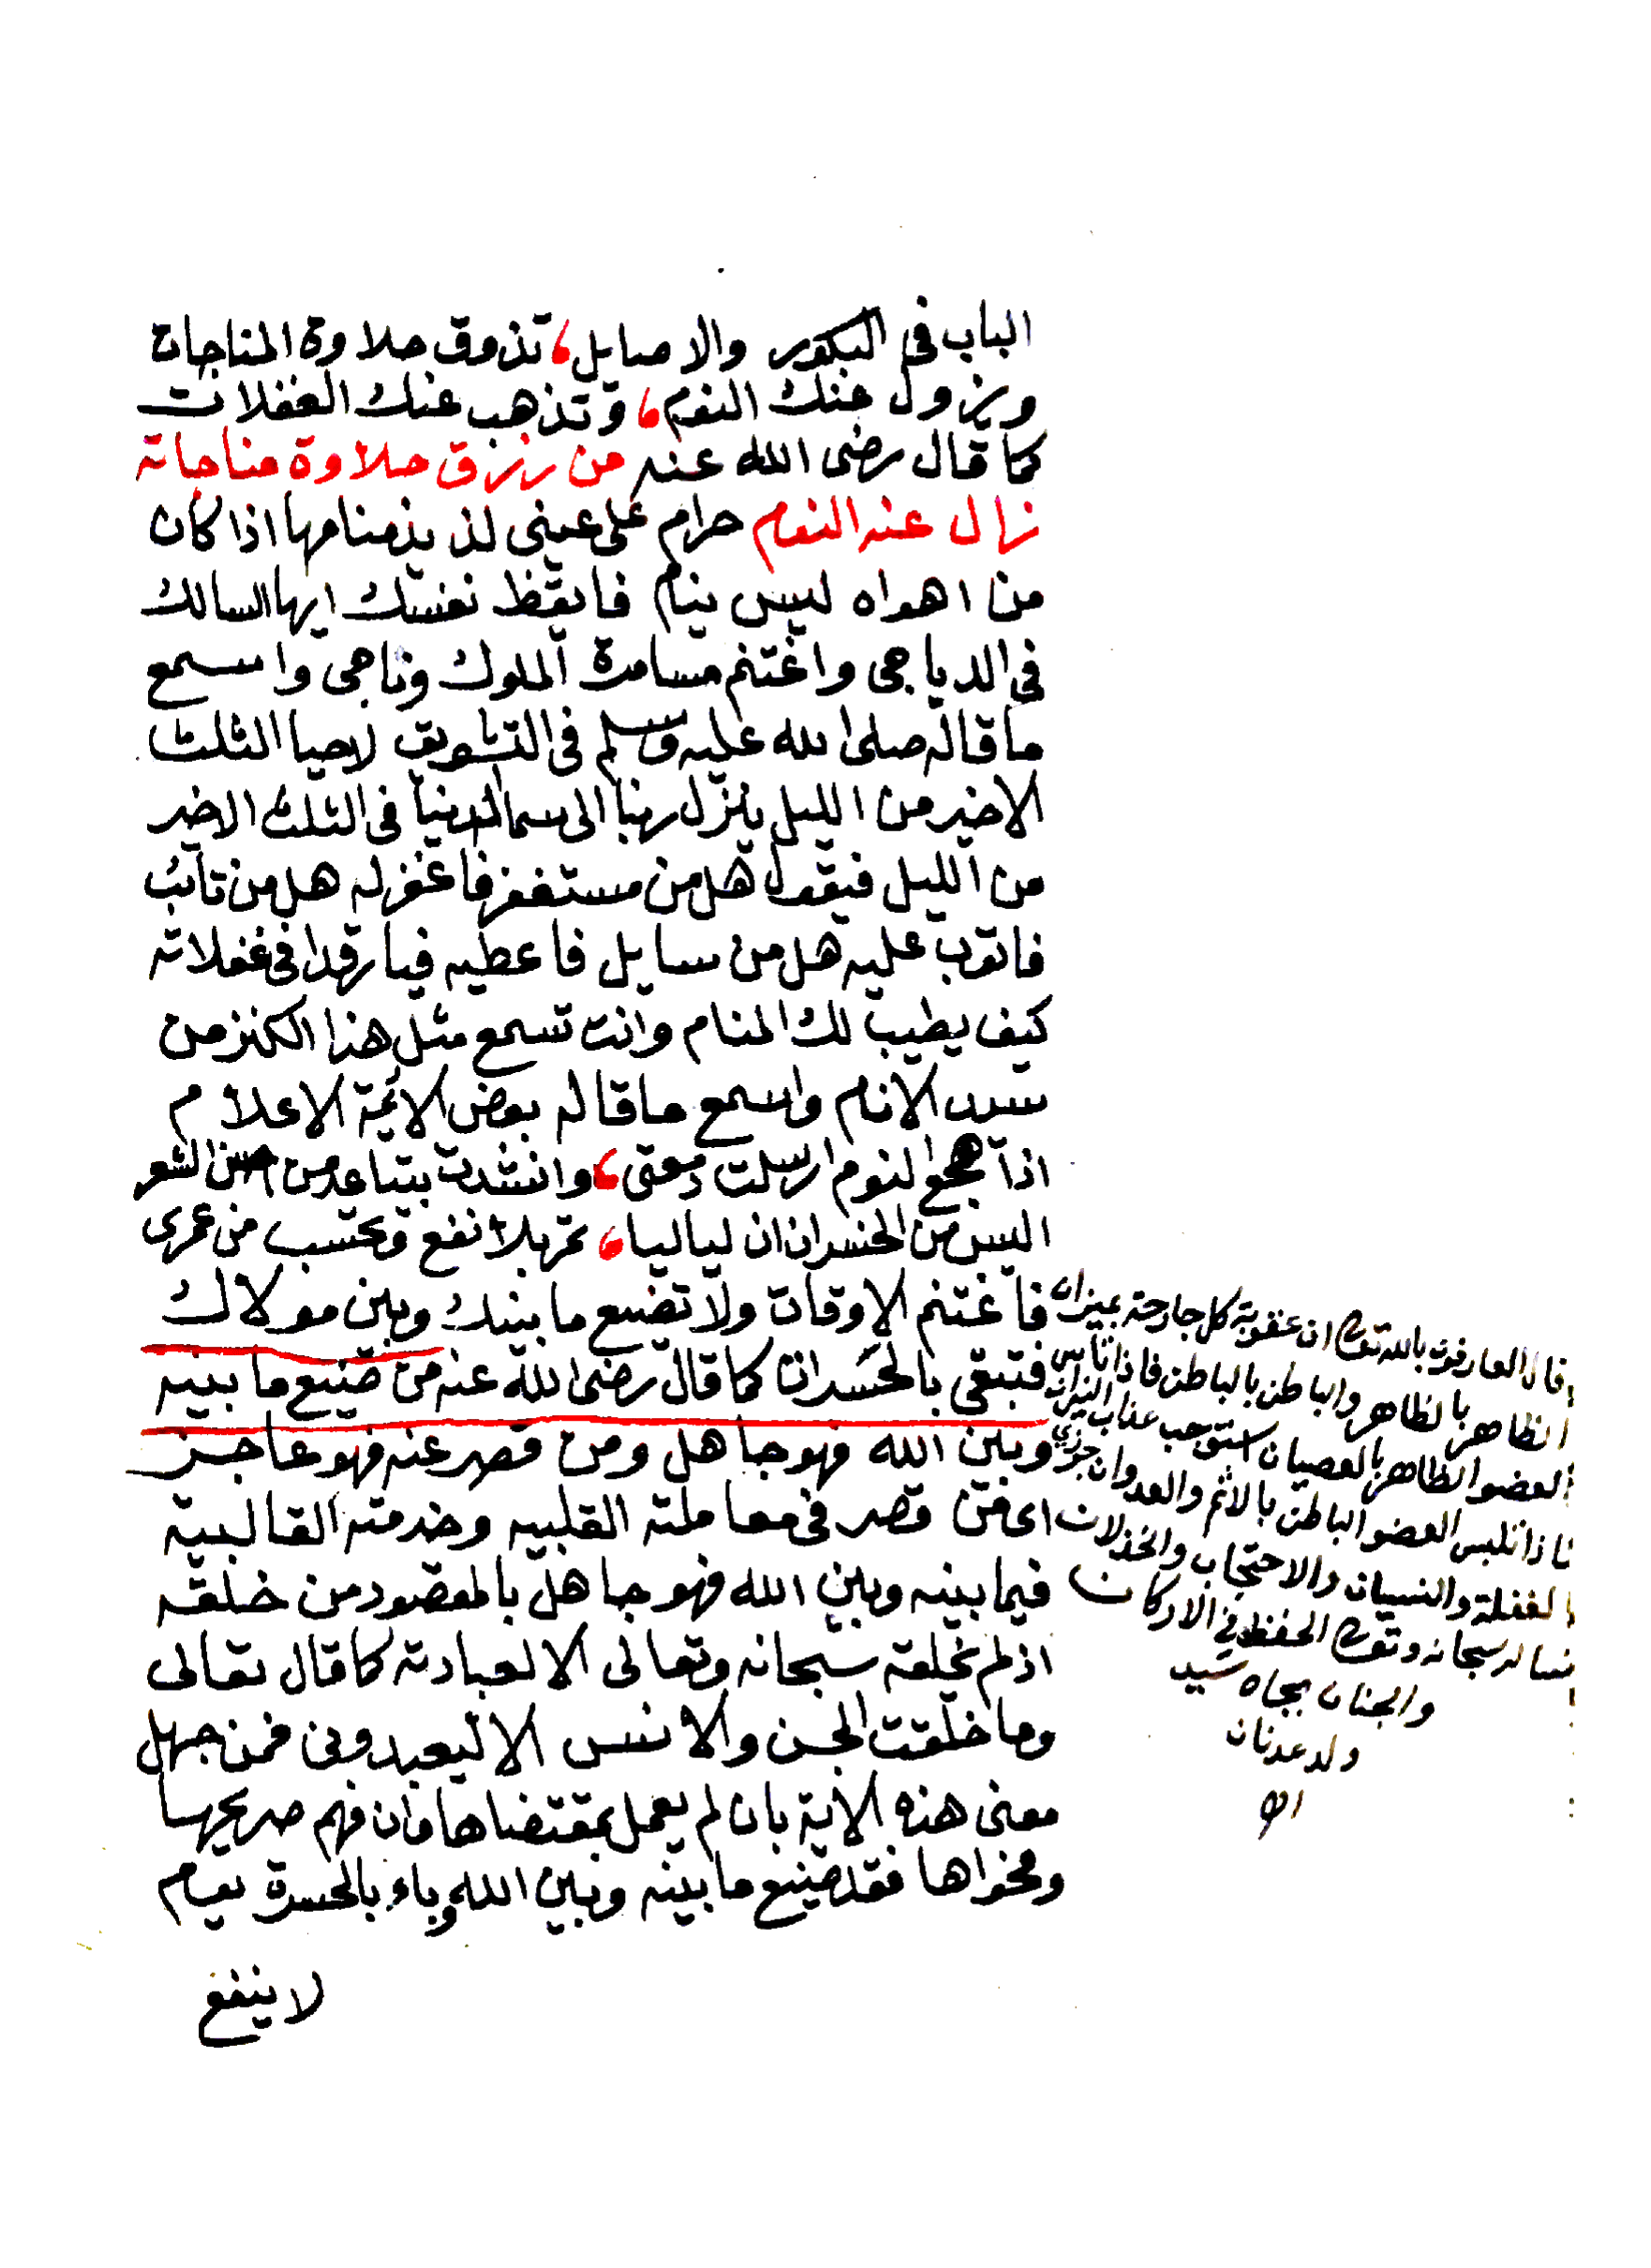 الباب فى البكور والاصايل، تذوق حلاوة المناجات
ويزول عنك النوم، وتذهب عنك الغفلات
كما قال رضى الله عنه من رزق حلاوة مناجاته
زال عنه النوم حرام على عينى لذيذ منامها اذا كان
من اهواه ليس ينام فايقظ نفسك ايها السالك
فى الدياجى واغتنم مسامرة الملوك وناجى واسمع
ما قاله صلى الله عليه وسلم فى التشويق لاحيا الثلث
الاخير من الليل ينزل ربنا الى سما الدنيا فى الثلث الاخير
من الليل فيقول هل من مستغفر فاغفر له هل من تائب
فاتوب عليه هل من سايل فاعطيه فيا رقدا فى غفلاته
كيف يطيب لك المنام وانت تسمع مثل هذا الكنز من
سيد الانام واسمع ما قاله بعض الائمة الاعلام
اذا هجع النوم ارسلت دمعتى، وانشدت بيتا عد من احسن الشعر
اليس من الخسران ان لياليا، تمر بلا نفع وتحسب من عمرى
فاغتنم الاوقات ولا تضيع ما بينك وبين مولاك
فتبقى بالخسران كما قال رضى الله عنه من ضيع ما بينه
وبين الله فهو جاهل ومن قصر عنه فهو عاجز
اى من قصر فى معاملته القلبيه وخدمته القالبية
فيما بينه وبين الله فهو جاهل بالمقصود من خلقه
اذ لم يخلقه سبحانه وتعالى الا لعبادته كما قال تعالى
وما خلقت الجن والانس الا ليعبدونى فمن جهل
معنى هذه الاية بان لم يعمل بمقتضاها وان فهم صريحها
وفحواها فقد ضيع ما بينه وبين الله وباء بالحسرة يوم
لا ينفع
قال العارفون بالله تعالى ان عقوبة كل جارحة بميزان
الظاهر بالظاهر والباطن بالباطن فاذا
العضو الظاهر بالعصيان استوجب عذاب النيران
فاذا تلبس العضو الباطن بالاثم والعدوان جوزي
الغفلة والنسيان والاحتجاب والخذلان
نساله سبحانه وتعالى الحفظ فى الاركان
والجنان بجاه سيد
ولد عدنان
اه